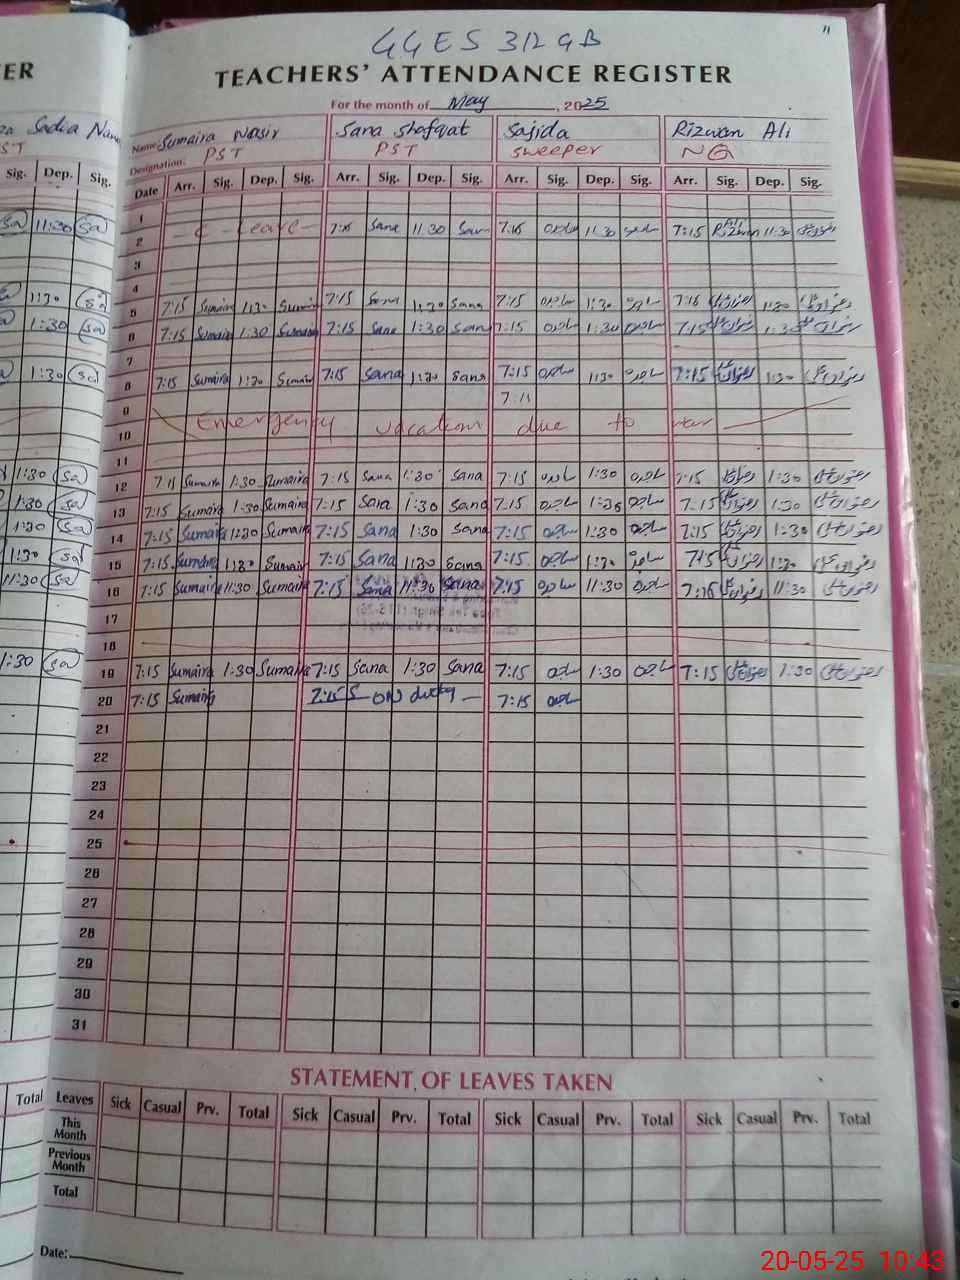 GGES 312 GB
"
ER
TEACHERS' ATTENDANCE REGISTER
For the month of May, 2025
Sadia
Name Sumaira Nasir Sana Shafqat Sajida Rizwan Ali
ST
Designation. PST PST Sweeper NQ
Sig. Dep. Sig. Date Arr. Sig. Dep. Sig. Arr. Sig. Dep. Sig. Arr. Sig. Dep. Sig. Arr. Sig. Dep. Sig.
1
11:30 sa 2 - C - Leave - Sana 11 30 11 30 7:15 11:30
3
4
1:30 sa 5 7:15 Sumaira 1:30 Sumaira 7:15 Sana 1:30 Sana 7:15 ساجدہ 1:30 ساجدہ 1:30
1:30 sa 6 7:15 Sumaira 1:30 Sumaira 7:15 Sana 1:30 Sana 7:15 ساجدہ 1:30 ساجدہ 7:15 1:30
7
1:30 sa 8 7:15 Sumaira 1:30 Sumaira 7:15 Sana 1:30 Sana 7:15 ساجدہ 1:30 ساجدہ 7:15 1:30
9 7:15
10 Emergency vacation due to war
11
1:30 sa 12 7:15 Sumaira 1:30 Sumaira 7:15 Sana 1:30 Sana 7:15 ساجدہ 1:30 ساجدہ 7:15 1:30
1:30 sa 13 7:15 Sumaira 1:30 Sumaira 7:15 Sana 1:30 Sana 7:15 ساجدہ 1:30 ساجدہ 7:15 1:30
1:30 sa 14 7:15 Sumaira 1:30 Sumaira 7:15 Sana 1:30 Sana 7:15 ساجدہ 1:30 ساجدہ 7:15 1:30
1:30 sa 15 7:15 Sumaira 1:30 Sumaira 7:15 Sana 1:30 Sana 7:15 ساجدہ 1:30 ساجدہ 7:15 1:30
11:30 sa 16 7:15 Sumaira 11:30 Sumaira 7:15 Sana 11:30 Sana 7:15 ساجدہ 11:30 ساجدہ 11:30
17
18
1:30 sa 19 7:15 Sumaira 1:30 Sumaira 7:15 Sana 1:30 Sana 7:15 ساجدہ 1:30 ساجدہ 7:15 1:30
20 7:15 Sumaira 7:15 - ON duty - 7:15 ساجدہ
21
22
23
24
25
26
27
28
29
30
31
STATEMENT OF LEAVES TAKEN
Total Leaves Sick Casual Prv. Total Sick Casual Prv. Total Sick Casual Prv. Total Sick Casual Prv. Total
This Month
Previous Month
Total
Date:
20-05-25 10:43